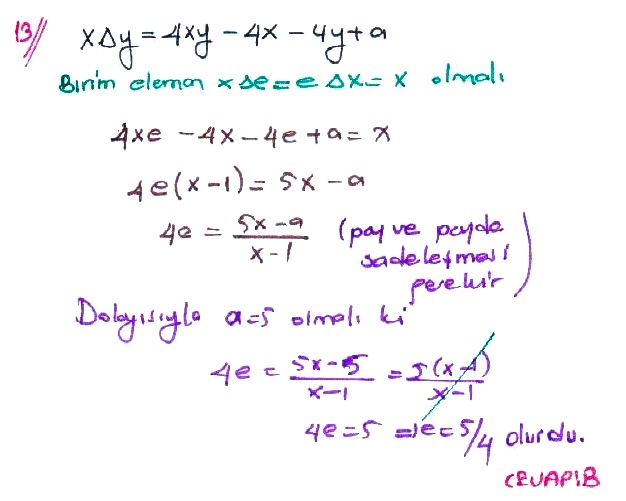 13// x∆y = 4xy - 4x - 4y + a
Birim eleman x∆e = e∆x = x olmalı
4xe - 4x - 4e + a = x
4e(x-1) = 5x - a
4e = (5x-a)/(x-1) (pay ve payda
sadeleşmesi
gerekir)
Dolayısıyla a=5 olmalı ki
4e = (5x-5)/(x-1) = 5(x-1)/(x-1)
4e = 5 ⇒ e = 5/4 olurdu.
CEVAP B